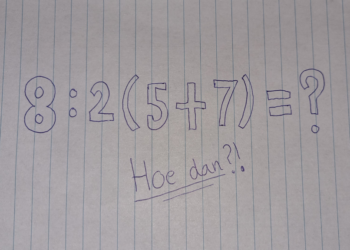 8:2(5+7)=?
Hoe dan?!